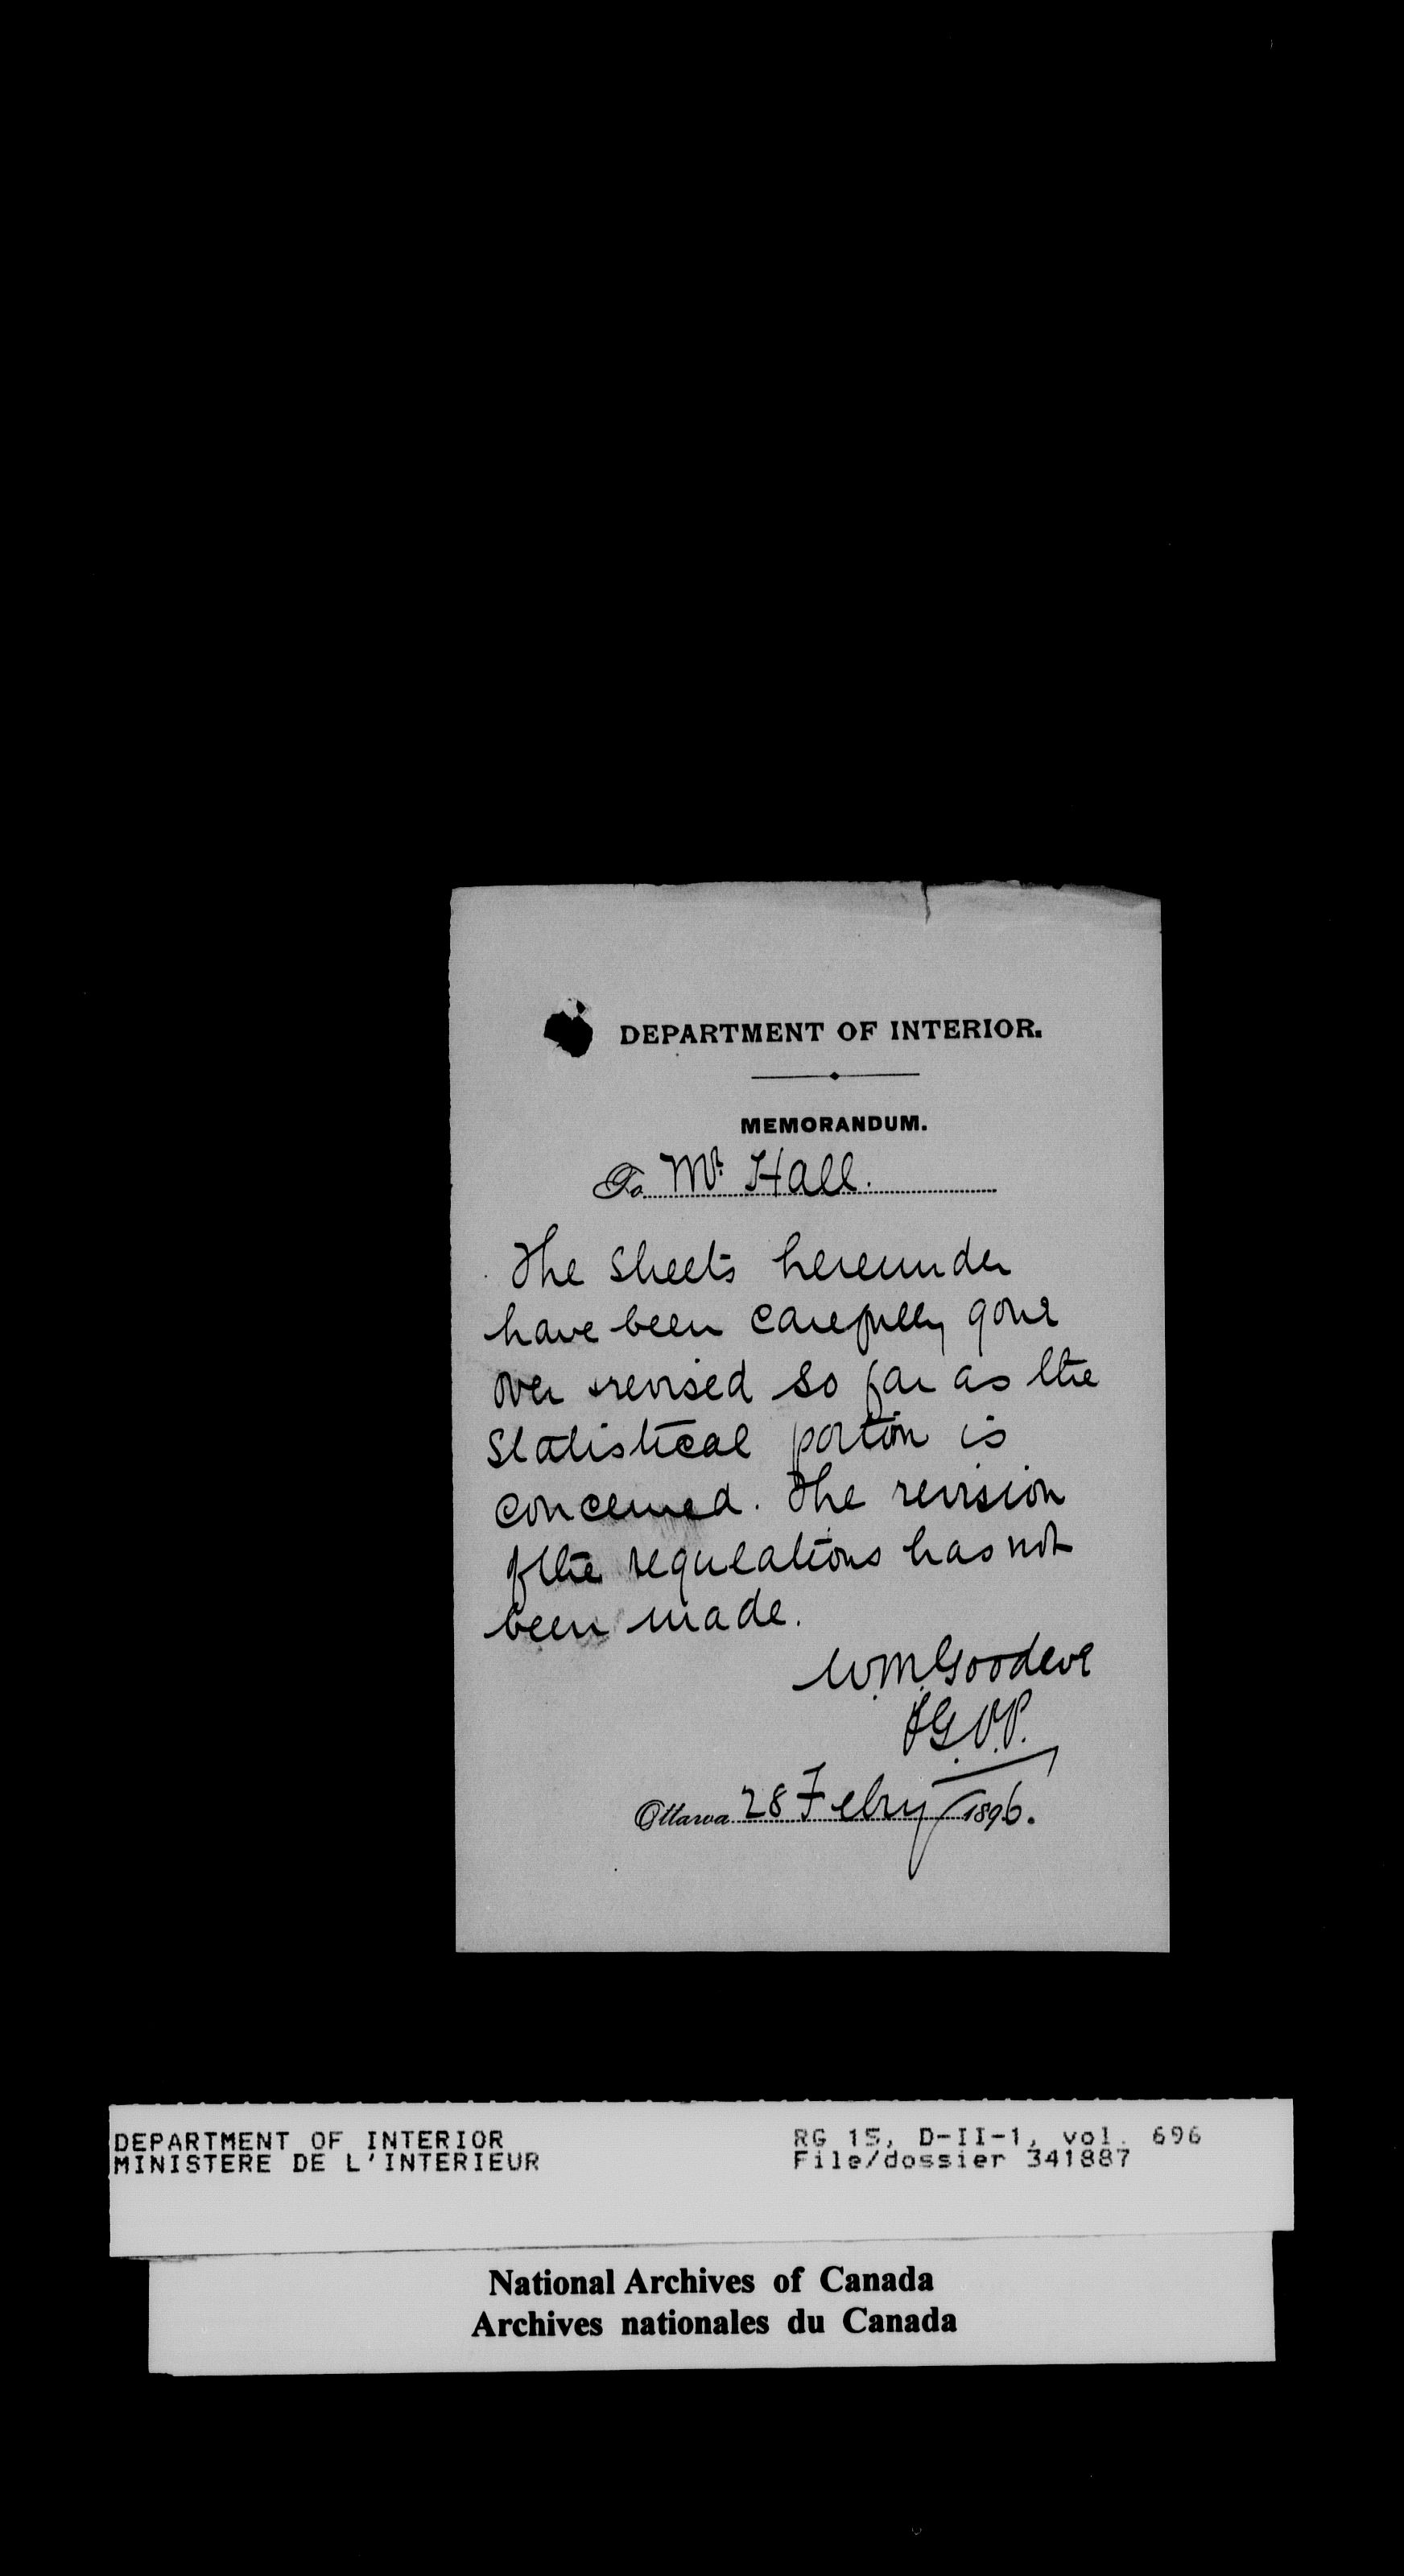 DEPARTMENT OF INTERIOR.
MEMORANDUM.
To Mr. Hall.
The sheets hereunder
have been carefully gone
over & revised so far as the
statistical portion is
concerned. The revision
of the regulations has not
been made.
W.M. Goodeve
Ottawa 28 Febry 1896.
DEPARTMENT OF INTERIOR
MINISTERE DE L'INTERIEUR
RG 15, D-II-1, vol. 696
File/dossier 341887
National Archives of Canada
Archives nationales du Canada